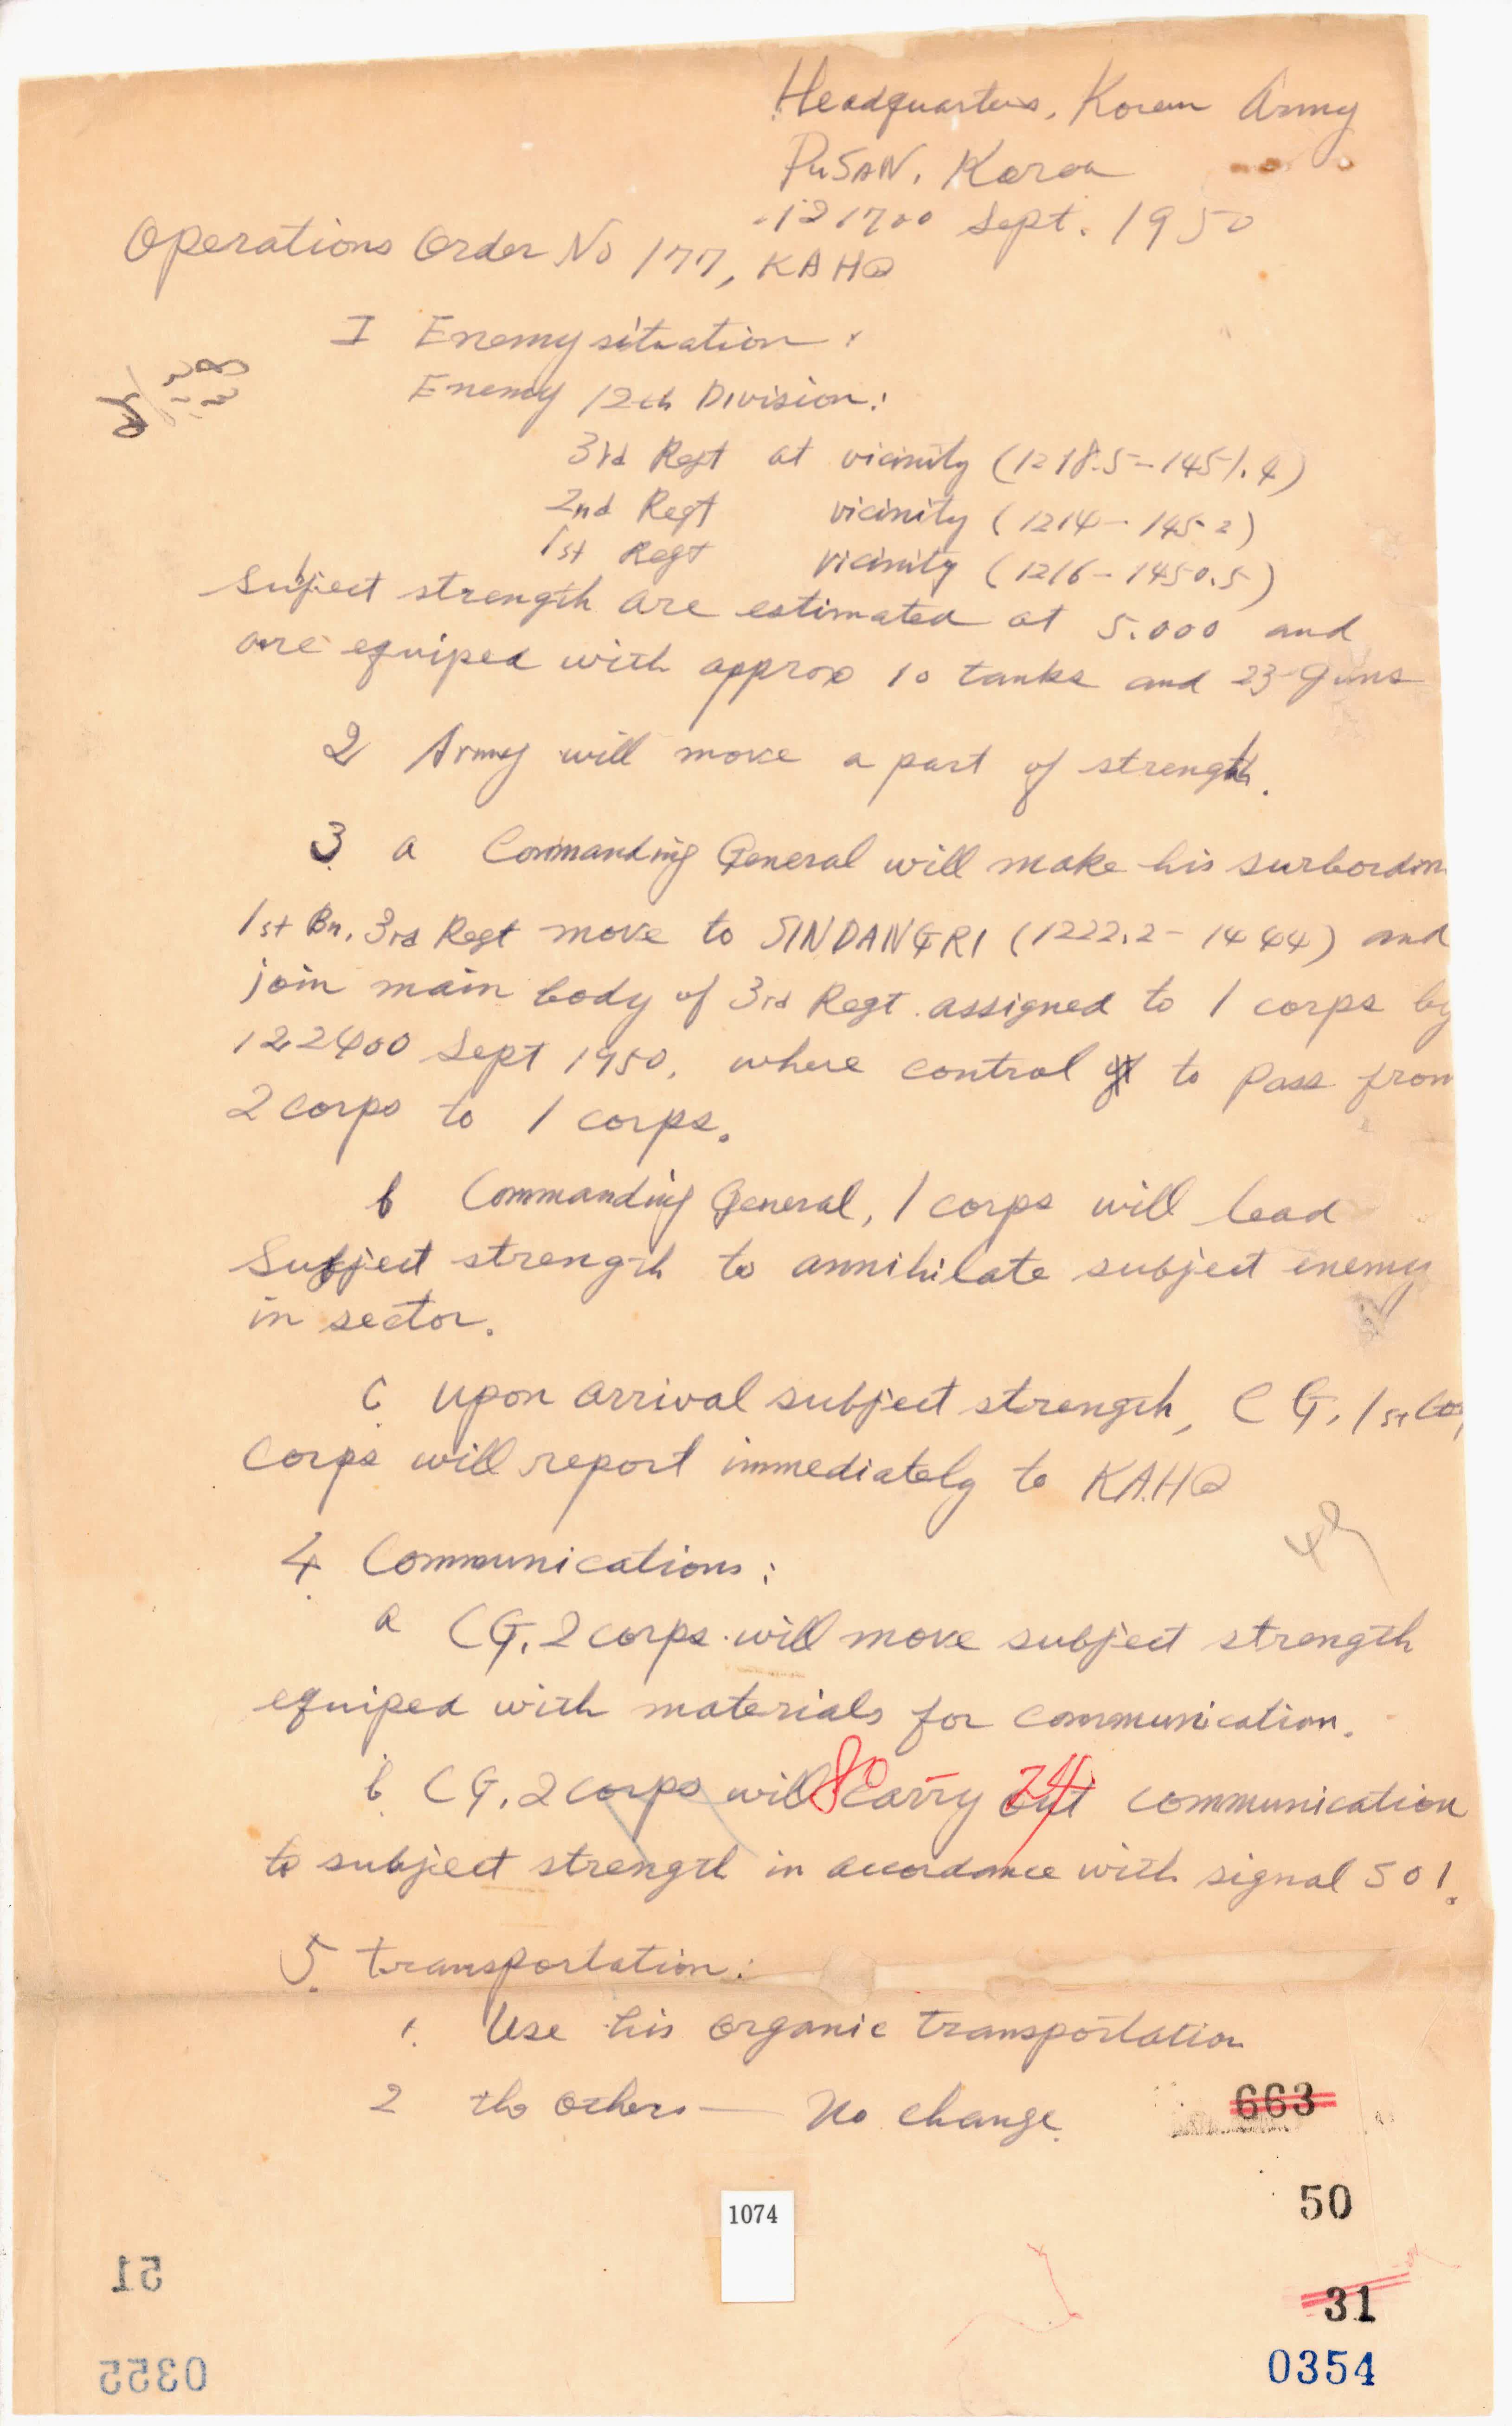 Headquarters, Korean Army
PuSAN, Korea
121700 Sept. 1950
Operations Order No 177, KAHQ
I Enemy situation:
Enemy 12th Division:
3rd Regt at vicinity (1218.5-1451.4)
2nd Regt vicinity (1214-1452)
1st Regt vicinity (1216-1450.5)
Subject strength are estimated at 5.000 and
are equiped with approx 10 tanks and 23 guns
2 Army will move a part of strength.
3. a Commanding General will make his surbordin
1st Bn, 3rd Regt move to SINDANGRI (1222.2-1444) and
join main body of 3rd Regt assigned to 1 corps by
122400 Sept 1950, where control to pass from
2 corps to 1 corps.
b Commanding General, 1 corps will lead
Subject strength to annihilate subject enemy
in sector.
C. Upon arrival subject strength, CG, 1st
Corps will report immediately to KAHQ
4. Communications:
a CG, 2 corps will move subject strength
equiped with materials for communication.
b. CG, 2 corps will carry out communication
80 74
to subject strength in accordance with signal 501.
5. transportation:
1. Use his organic transportation
2 the others — No change.
663
50
1074
51
31
0355
0354